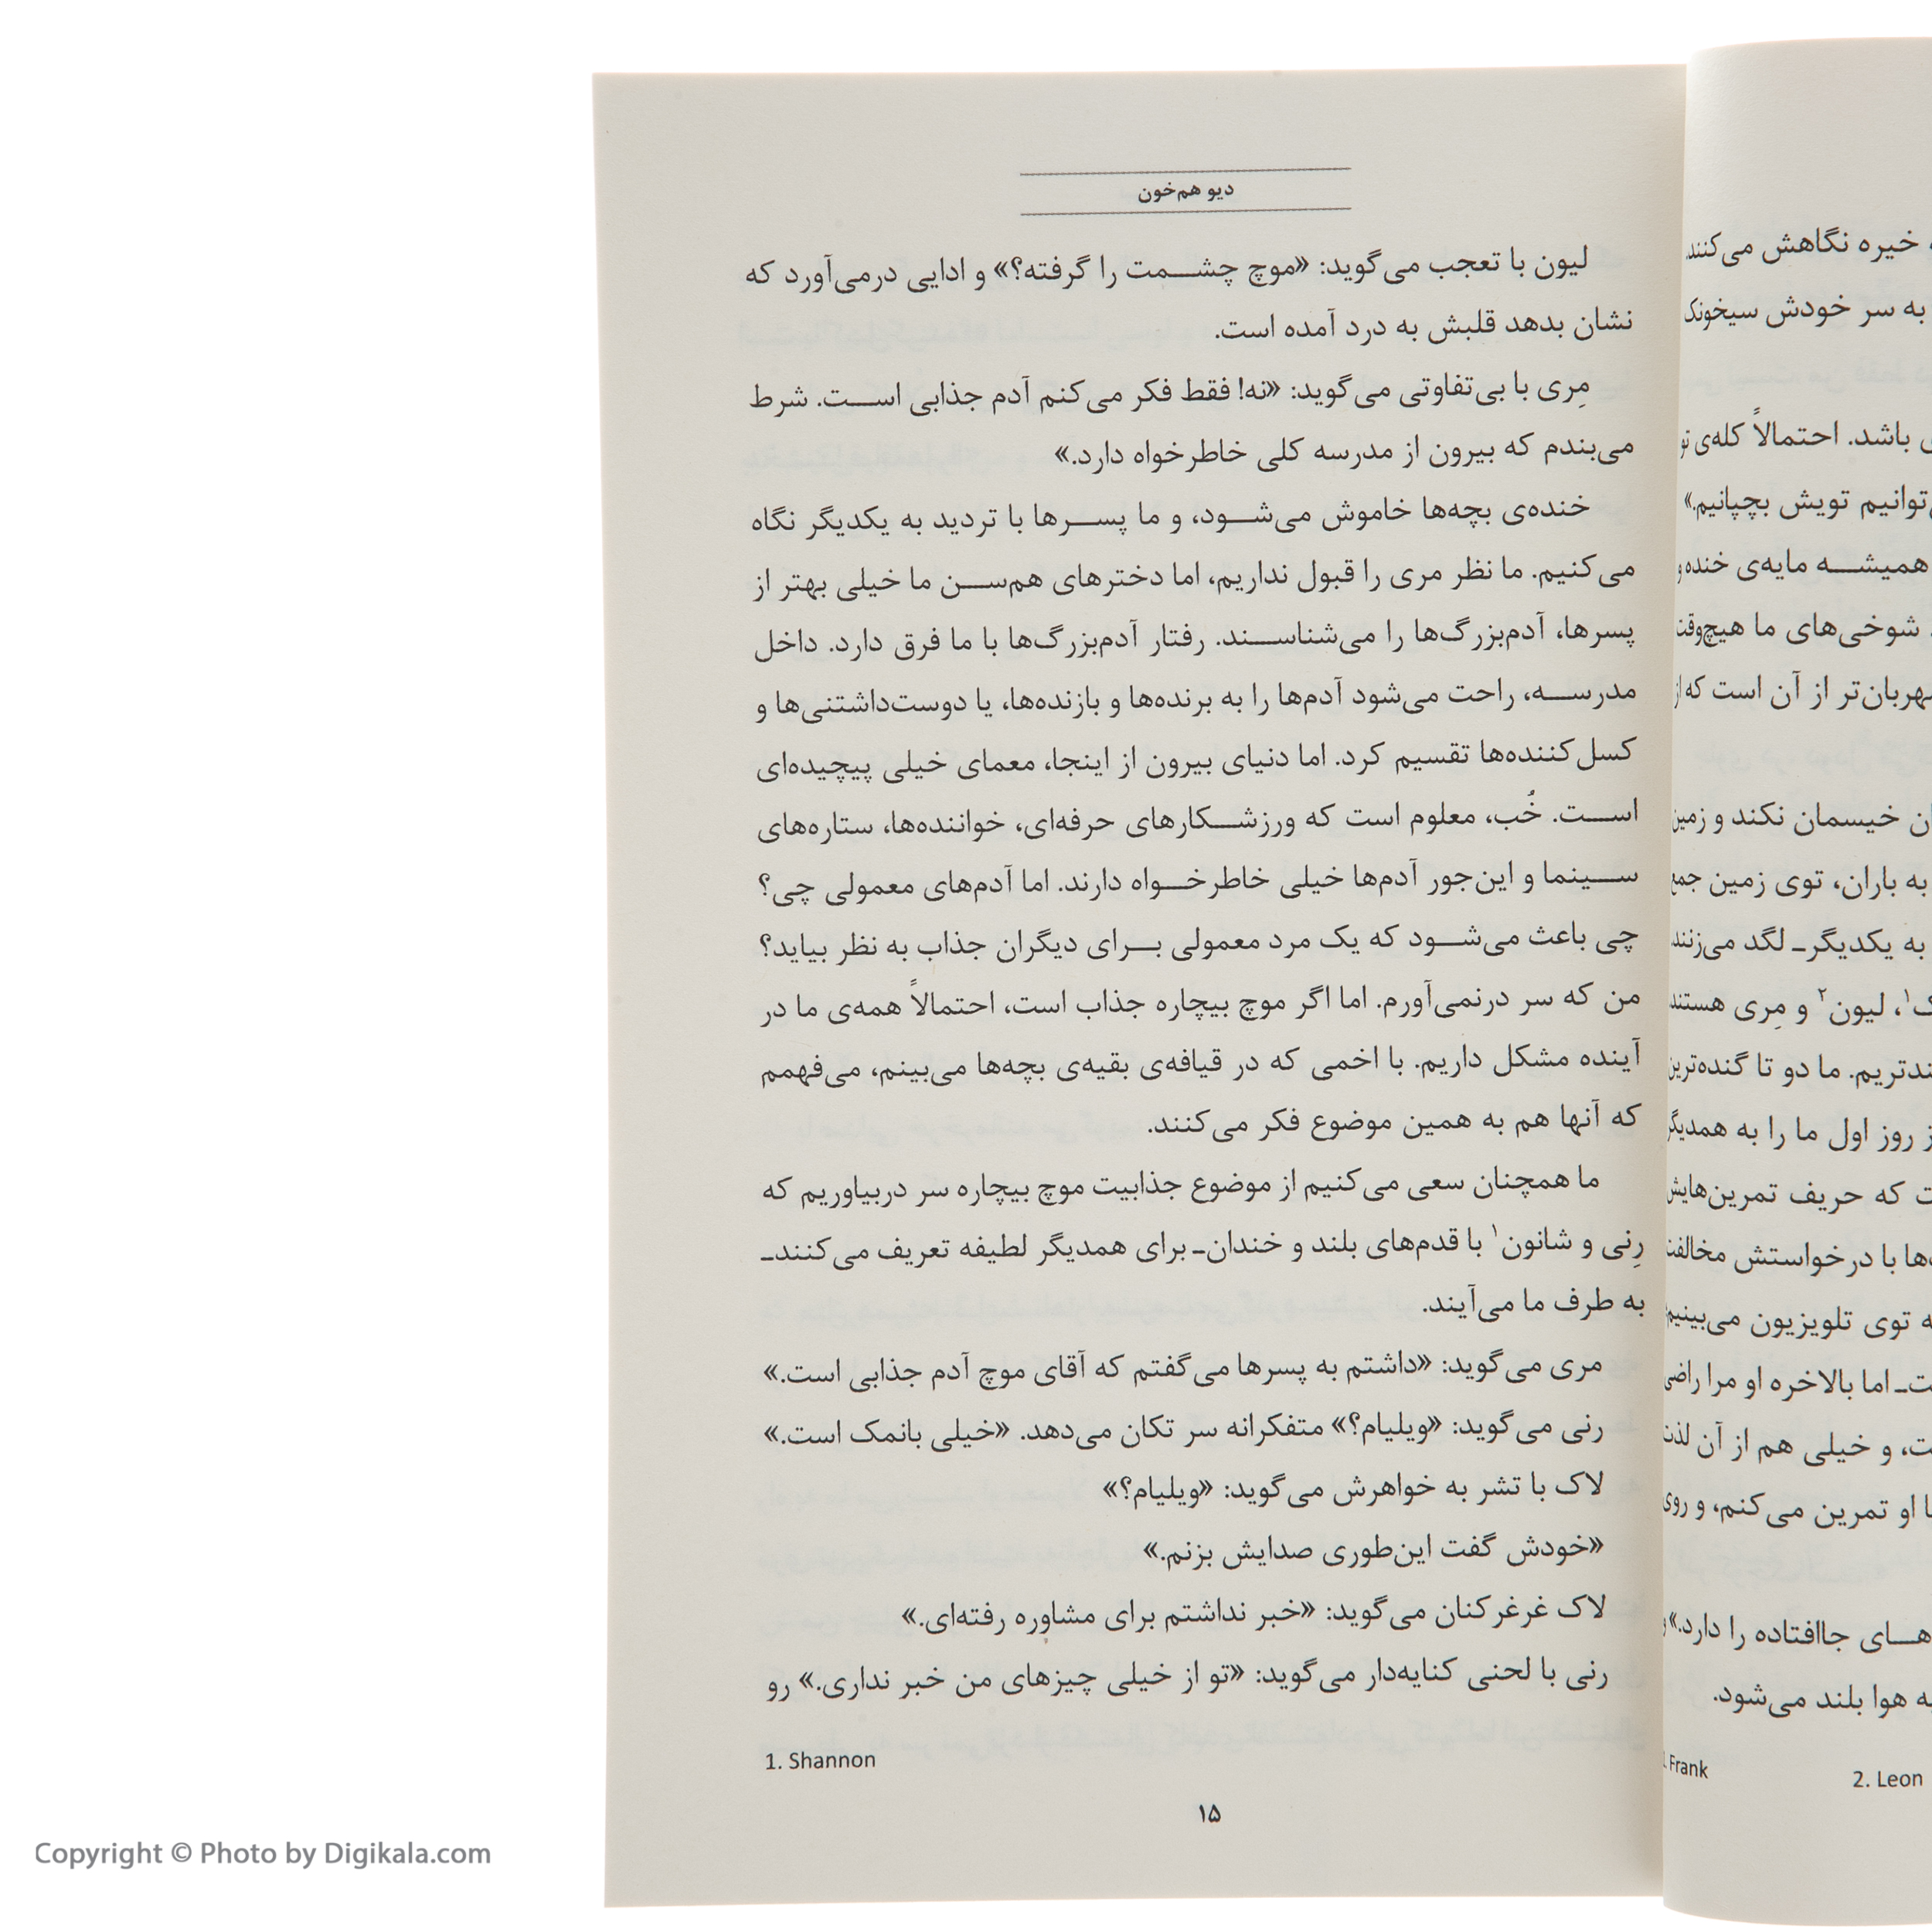 دیو هم‌خون
لیون با تعجب می‌گوید: «موچ چشمت را گرفته؟» و ادایی درمی‌آورد که
نشان بدهد قلبش به درد آمده است.
مِری با بی‌تفاوتی می‌گوید: «نه! فقط فکر می‌کنم آدم جذابی است. شرط
می‌بندم که بیرون از مدرسه کلی خاطرخواه دارد.»
خنده‌ی بچه‌ها خاموش می‌شود، و ما پسرها با تردید به یکدیگر نگاه
می‌کنیم. ما نظر مری را قبول نداریم، اما دخترهای هم‌سن ما خیلی بهتر از
پسرها، آدم‌بزرگ‌ها را می‌شناسند. رفتار آدم‌بزرگ‌ها با ما فرق دارد. داخل
مدرسه، راحت می‌شود آدم‌ها را به برنده‌ها و بازنده‌ها، یا دوست‌داشتنی‌ها و
کسل‌کننده‌ها تقسیم کرد. اما دنیای بیرون از اینجا، معمای خیلی پیچیده‌ای
است. خُب، معلوم است که ورزشکارهای حرفه‌ای، خواننده‌ها، ستاره‌های
سینما و این‌جور آدم‌ها خیلی خاطرخواه دارند. اما آدم‌های معمولی چی؟
چی باعث می‌شود که یک مرد معمولی برای دیگران جذاب به نظر بیاید؟
من که سر درنمی‌آورم. اما اگر موچ بیچاره جذاب است، احتمالاً همه‌ی ما در
آینده مشکل داریم. با اخمی که در قیافه‌ی بقیه‌ی بچه‌ها می‌بینم، می‌فهمم
که آنها هم به همین موضوع فکر می‌کنند.
ما همچنان سعی می‌کنیم از موضوع جذابیت موچ بیچاره سر دربیاوریم که
رِنی و شانون۱ با قدم‌های بلند و خندان_ برای همدیگر لطیفه تعریف می‌کنند_
به طرف ما می‌آیند.
مری می‌گوید: «داشتم به پسرها می‌گفتم که آقای موچ آدم جذابی است.»
رنی می‌گوید: «ویلیام؟» متفکرانه سر تکان می‌دهد. «خیلی بانمک است.»
لاک با تشر به خواهرش می‌گوید: «ویلیام؟»
«خودش گفت این‌طوری صدایش بزنم.»
لاک غرغرکنان می‌گوید: «خبر نداشتم برای مشاوره رفته‌ای.»
رنی با لحنی کنایه‌دار می‌گوید: «تو از خیلی چیزهای من خبر نداری.» رو
1. Shannon
۱۵
خیره نگاهش می‌کنند
به سر خودش سیخونک
باشد. احتمالاً کله‌ی تو
توانیم تویش بچپانیم.»
همیشه مایه‌ی خنده و
شوخی‌های ما هیچ‌وقت
مهربان‌تر از آن است که از
خیسمان نکند و زمین
به باران، توی زمین جمع
به یکدیگر_ لگد می‌زنند
۱، لیون۲ و مِری هستند
ما دو تا گنده‌ترین
روز اول ما را به همدیگر
که حریف تمرین‌هایش
با درخواستش مخالفت
توی تلویزیون می‌بینیم
اما بالاخره او مرا راضی
و خیلی هم از آن لذت
او تمرین می‌کنم، و روی
جاافتاده را دارد.» و
هوا بلند می‌شود.
Frank 2. Leon
Copyright © Photo by Digikala.com